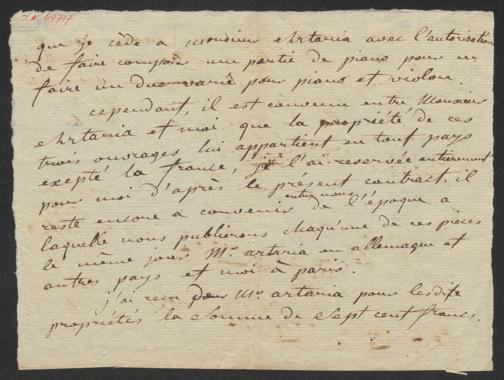 I.N. 69717
que je cède a monsieur Artaria avec l'autorisation
de faire composer une partie de piano pour en
faire un duo varié pour piano et violon.
cependant, il est convenu entre Monsieur
Artaria et moi que la propriété de ces
trois ouvrages lui appartient en tout pays
excepté la france, je l'ai reservée entierement
pour moi d'après le présent contract. il
reste encore a convenir entre nous de l'époque a
laquelle nous publirons chaqu'une de ces pièces
le même jour Mr. artaria en allemagne et
autres pays et moi à paris.
j'ai reçu de Mr. artaria pour les dite
propriétés la Somme de Sept cent francs.